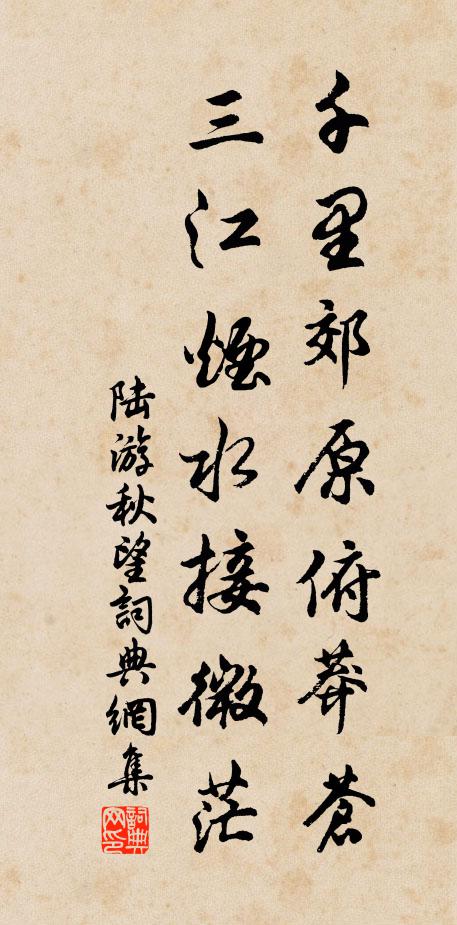 千里郊原俯莽蒼
三江煙水接微茫
陆游秋望詞典網集
詞典网印